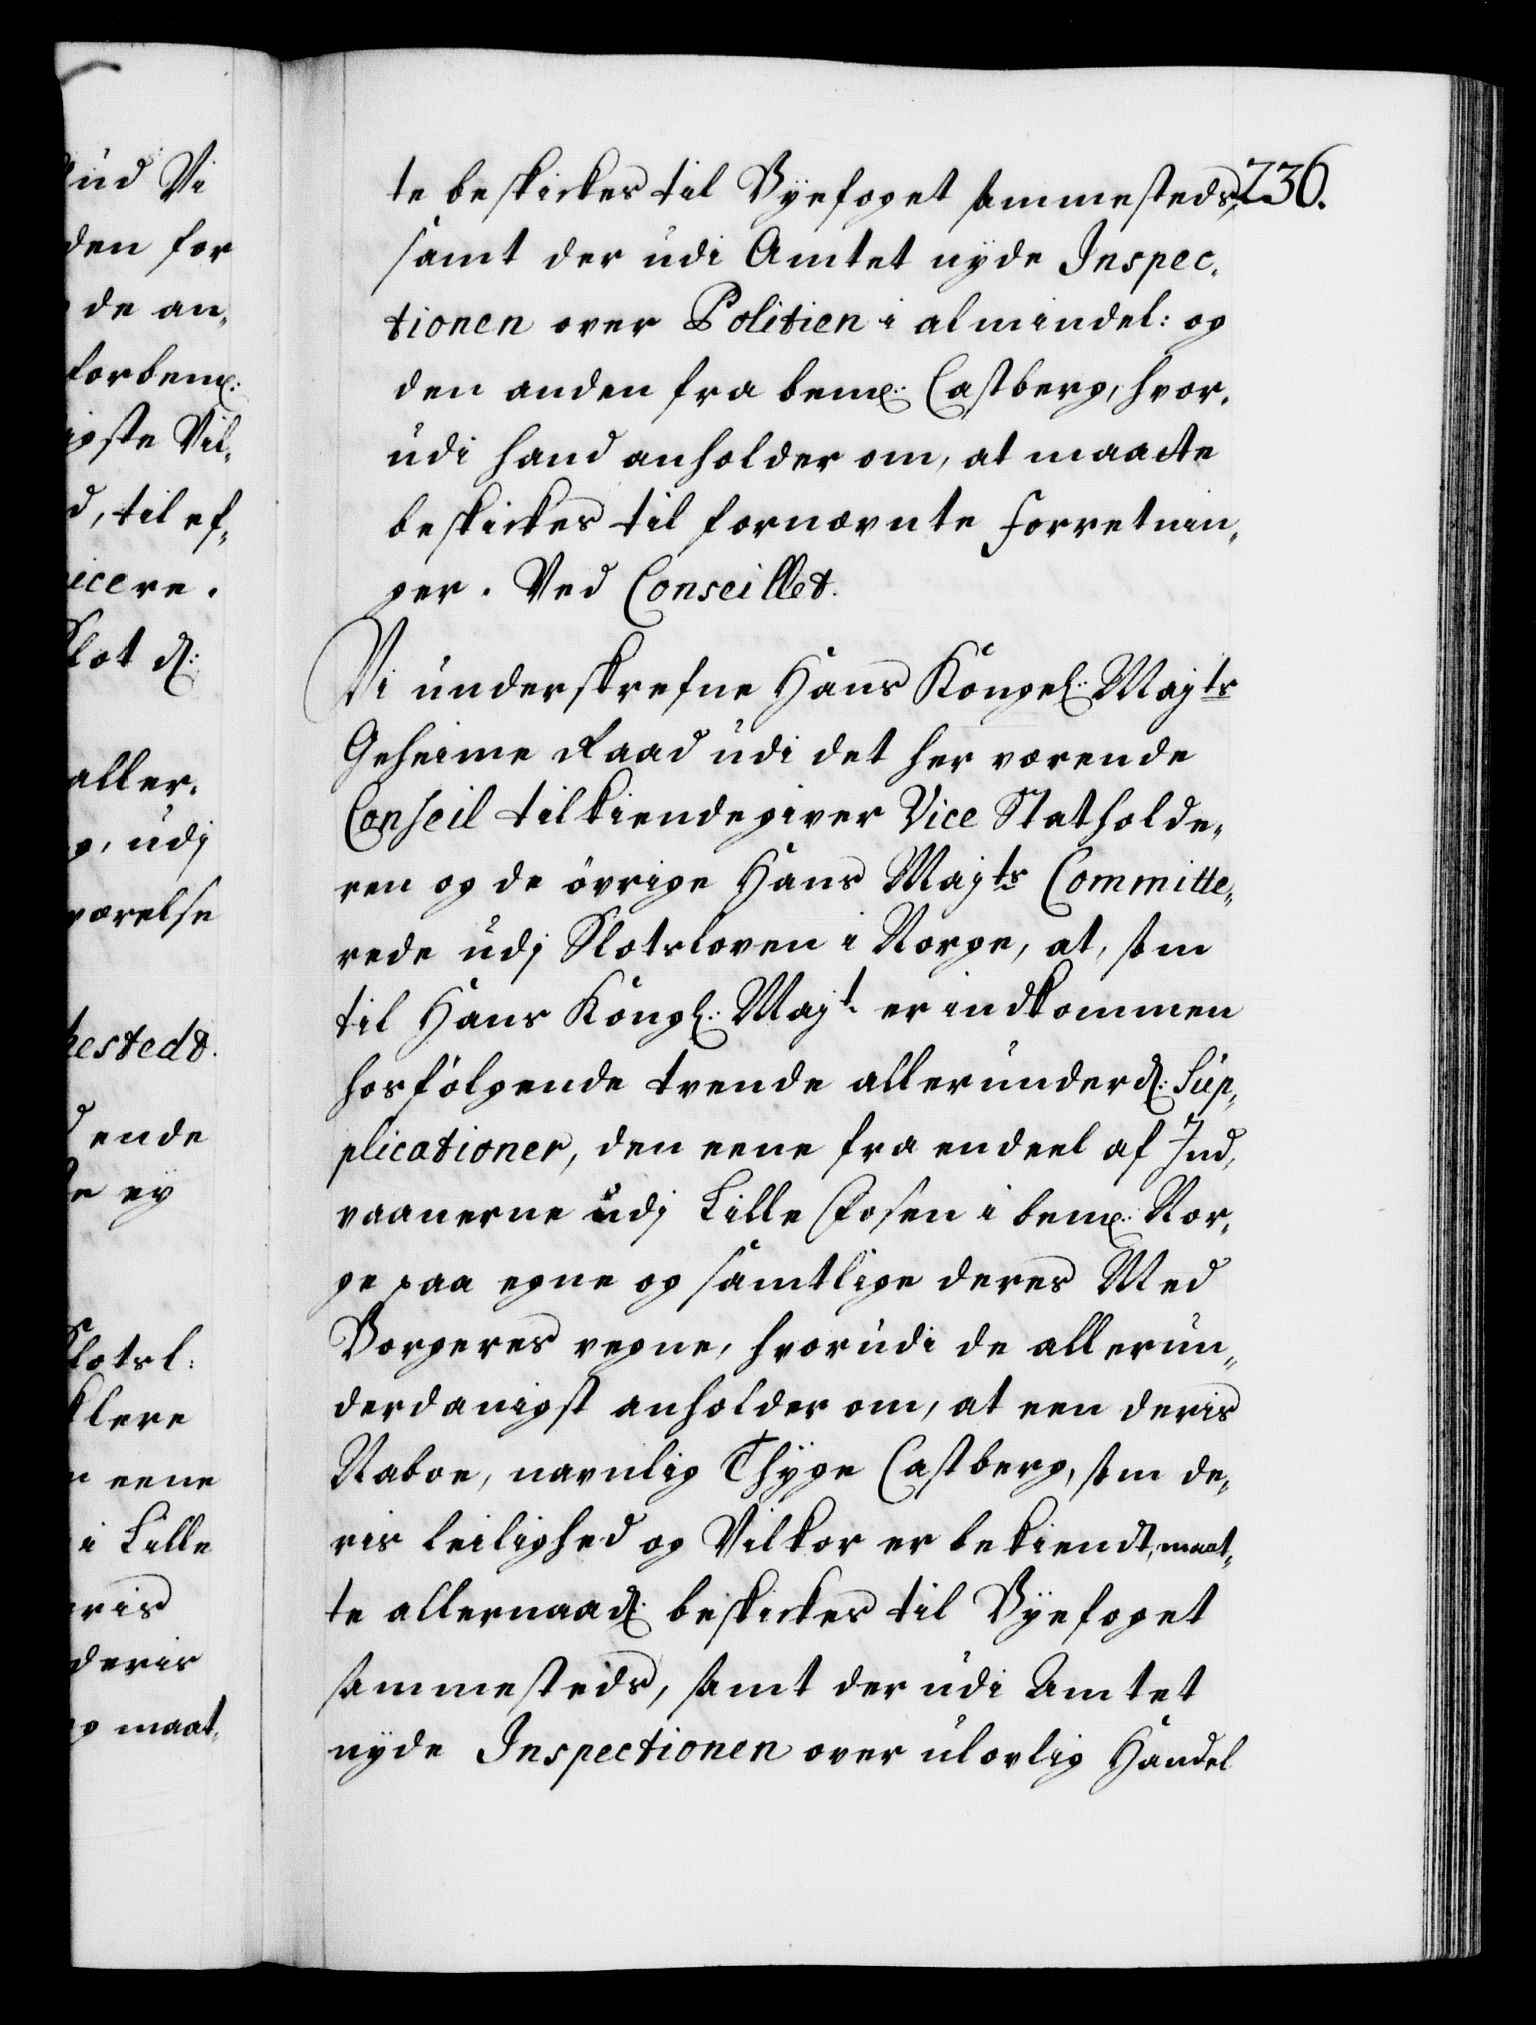 ud Vi
den for
de an,
forbemt:
igste Vil,
d, til ef,
icere.
Slot d:
aller,
g, udj
værelse
hestedt.
ende
de ey
Slotsl:
klere
n eene
i Lille
eris
deris
og maat,
236.
te beskickes til Byefoget sammesteds,
samt der udi Amtet nyde Inspec,
tionen over Politien i almindel: og
den anden fra bemt: Castberg, hvor,
udi hand anholder om, at maatte
beskickes til fornævnte Forretnin,
ger. Ved Conseillet.
Vi underskrefne Hans Kongel: Majts
Geheime Raad udi det her værende
Conseil tilkiendegiver Vice Statholde,
ren og de övrige Hans Majts Committe,
rede udj Slotsloven i Norge, at, som
til Hans Kongl: Majt. er indkommen
hosfölgende tvende allerunderd: Sup,
plicationer, den eene fra endeel af Ind,
vaanerne udj Lille Fosen i bemt: Nor,
ge paa egne og samtlige deres Med
Borgeres vegne, hvorudi de allerun,
derdanigst anholder om, at een deris
Naboe, navnlig Thyge Castberg, som de,
ris leilighed og Vilkor er bekiendt, maat,
te allernaad: beskickes til Byefoget
sammesteds, samt der udi Amtet
nyde Inspectionen over ulovlig Handel